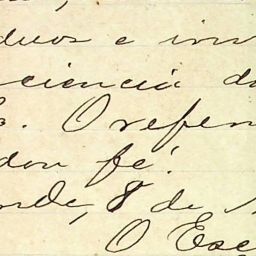 duos e inv
ciencia da
O referi
dou fé.
nde, 8 de
O Esc